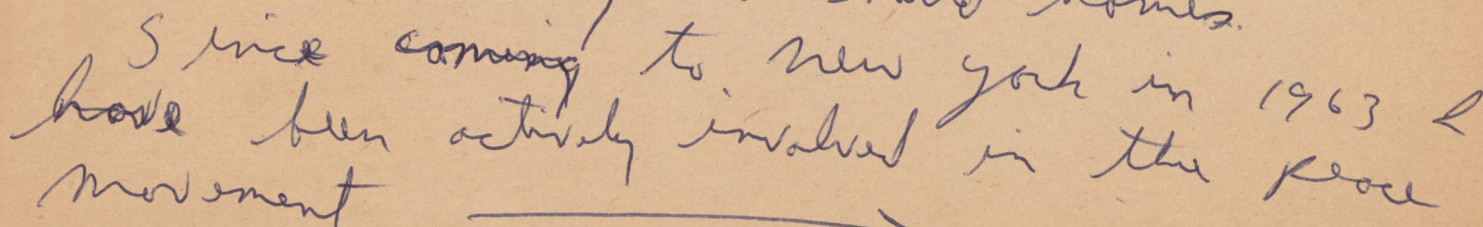 homes.
Since coming to new york in 1963 I
have been actively involved in the peace
movement